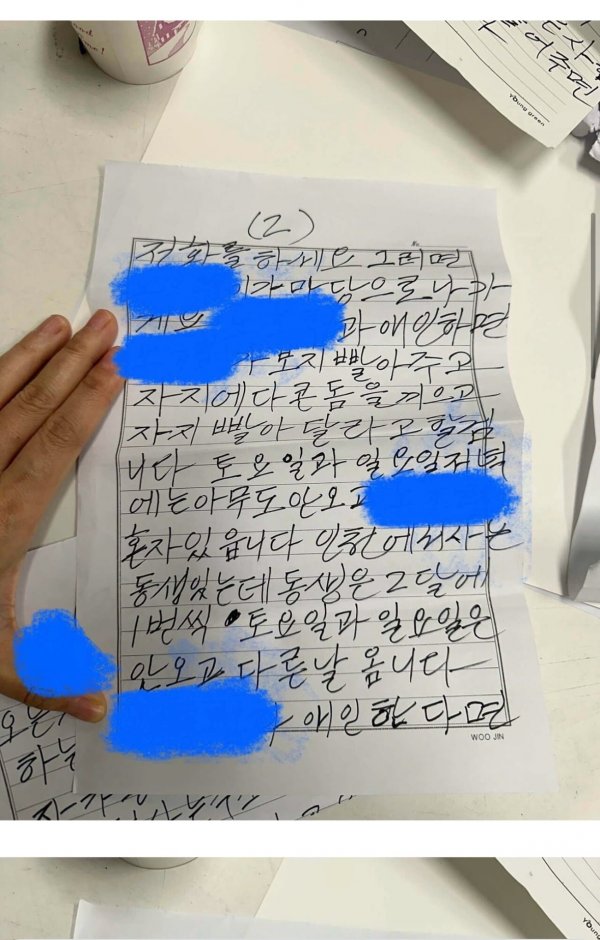 (2)
No.
전화를 하세요 그러면
마당으로 나가
게요 과 애인하면
보지 빨아주고
자지에다 콘돔을 끼으고
자지 빨아 달라고 할겁
니다 토요일과 일요일저녁
에는아무도안오고
혼자있읍니다 인천에 사는
동생있는데 동생은 2달에
1번씩 토요일과 일요일은
안오고 다른날 옴니다
애인한다면
WOO JIN
어주면
young green
하는